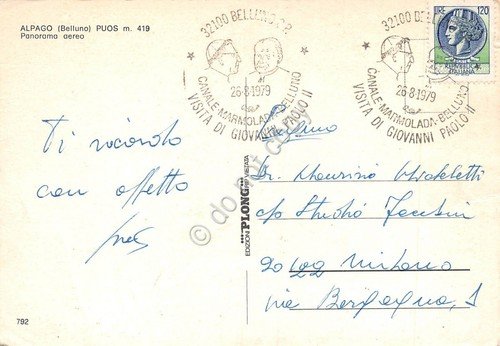 ALPAGO (Belluno) PUOS m. 419
Panorama aereo
32100 BELLUNO C.P.
26-8-1979
CANALE-MARMOLADA-BELLUNO
VISITA DI GIOVANNI PAOLO II
32100 BELLUNO
26-8-1979
CANALE-MARMOLADA-BELLUNO
VISITA DI GIOVANNI PAOLO II
LIRE 120
ITALIANA
Ti ricordo
con affetto
© do not copy
EDIZIONI PLONG RIP. VIETATA
Dr. Maurizio
c/o Studio
20122 Milano
Via Bergamo, 1
792